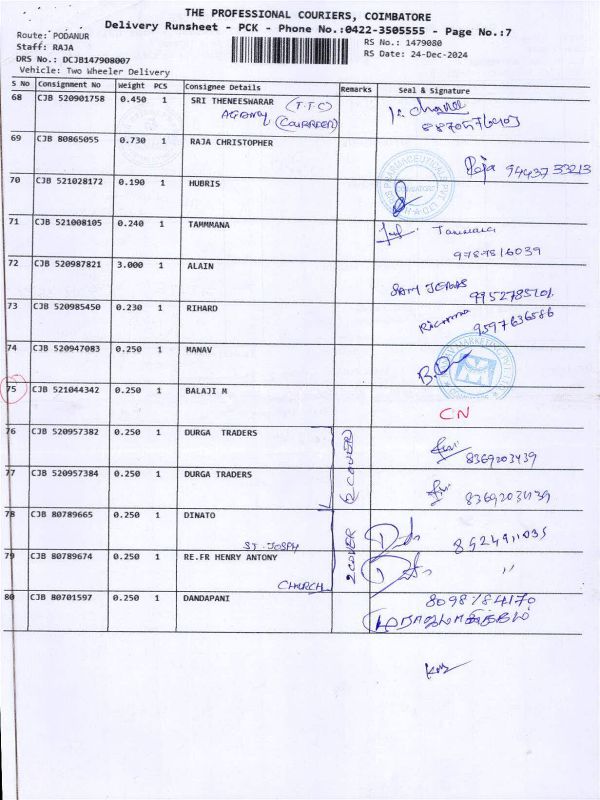 THE PROFESSIONAL COURIERS, COIMBATORE
Delivery Runsheet - PCK - Phone No.:0422-3505555 - Page No.:7
Route: PODANUR
RS No.: 1479080
Staff: RAJA
RS Date: 24-Dec-2024
DRS No.: DCJB147908007
Vehicle: Two Wheeler Delivery
S No Consignment No Weight PCS Consignee Details Remarks Seal & Signature
68 CJB 520901758 0.450 1 SRI THENEESWARAR (T.T.C)
AGENCY
69 CJB 80865055 0.730 1 RAJA CHRISTOPHER
Raja 9443733213
70 CJB 521028172 0.190 1 HUBRIS
71 CJB 521008105 0.240 1 TAMMMANA
9787816039
72 CJB 520987821 3.000 1 ALAIN
73 CJB 520985450 0.230 1 RIHARD
9597636586
74 CJB 520947083 0.250 1 MANAV
75 CJB 521044342 0.250 1 BALAJI M
CN
76 CJB 520957382 0.250 1 DURGA TRADERS (2 COVER)
8369203439
77 CJB 520957384 0.250 1 DURGA TRADERS
8369203439
78 CJB 80789665 0.250 1 DINATO 2 COVER
ST. JOSPH
79 CJB 80789674 0.250 1 RE.FR HENRY ANTONY "
CHURCH
80 CJB 80701597 0.250 1 DANDAPANI 8098784170